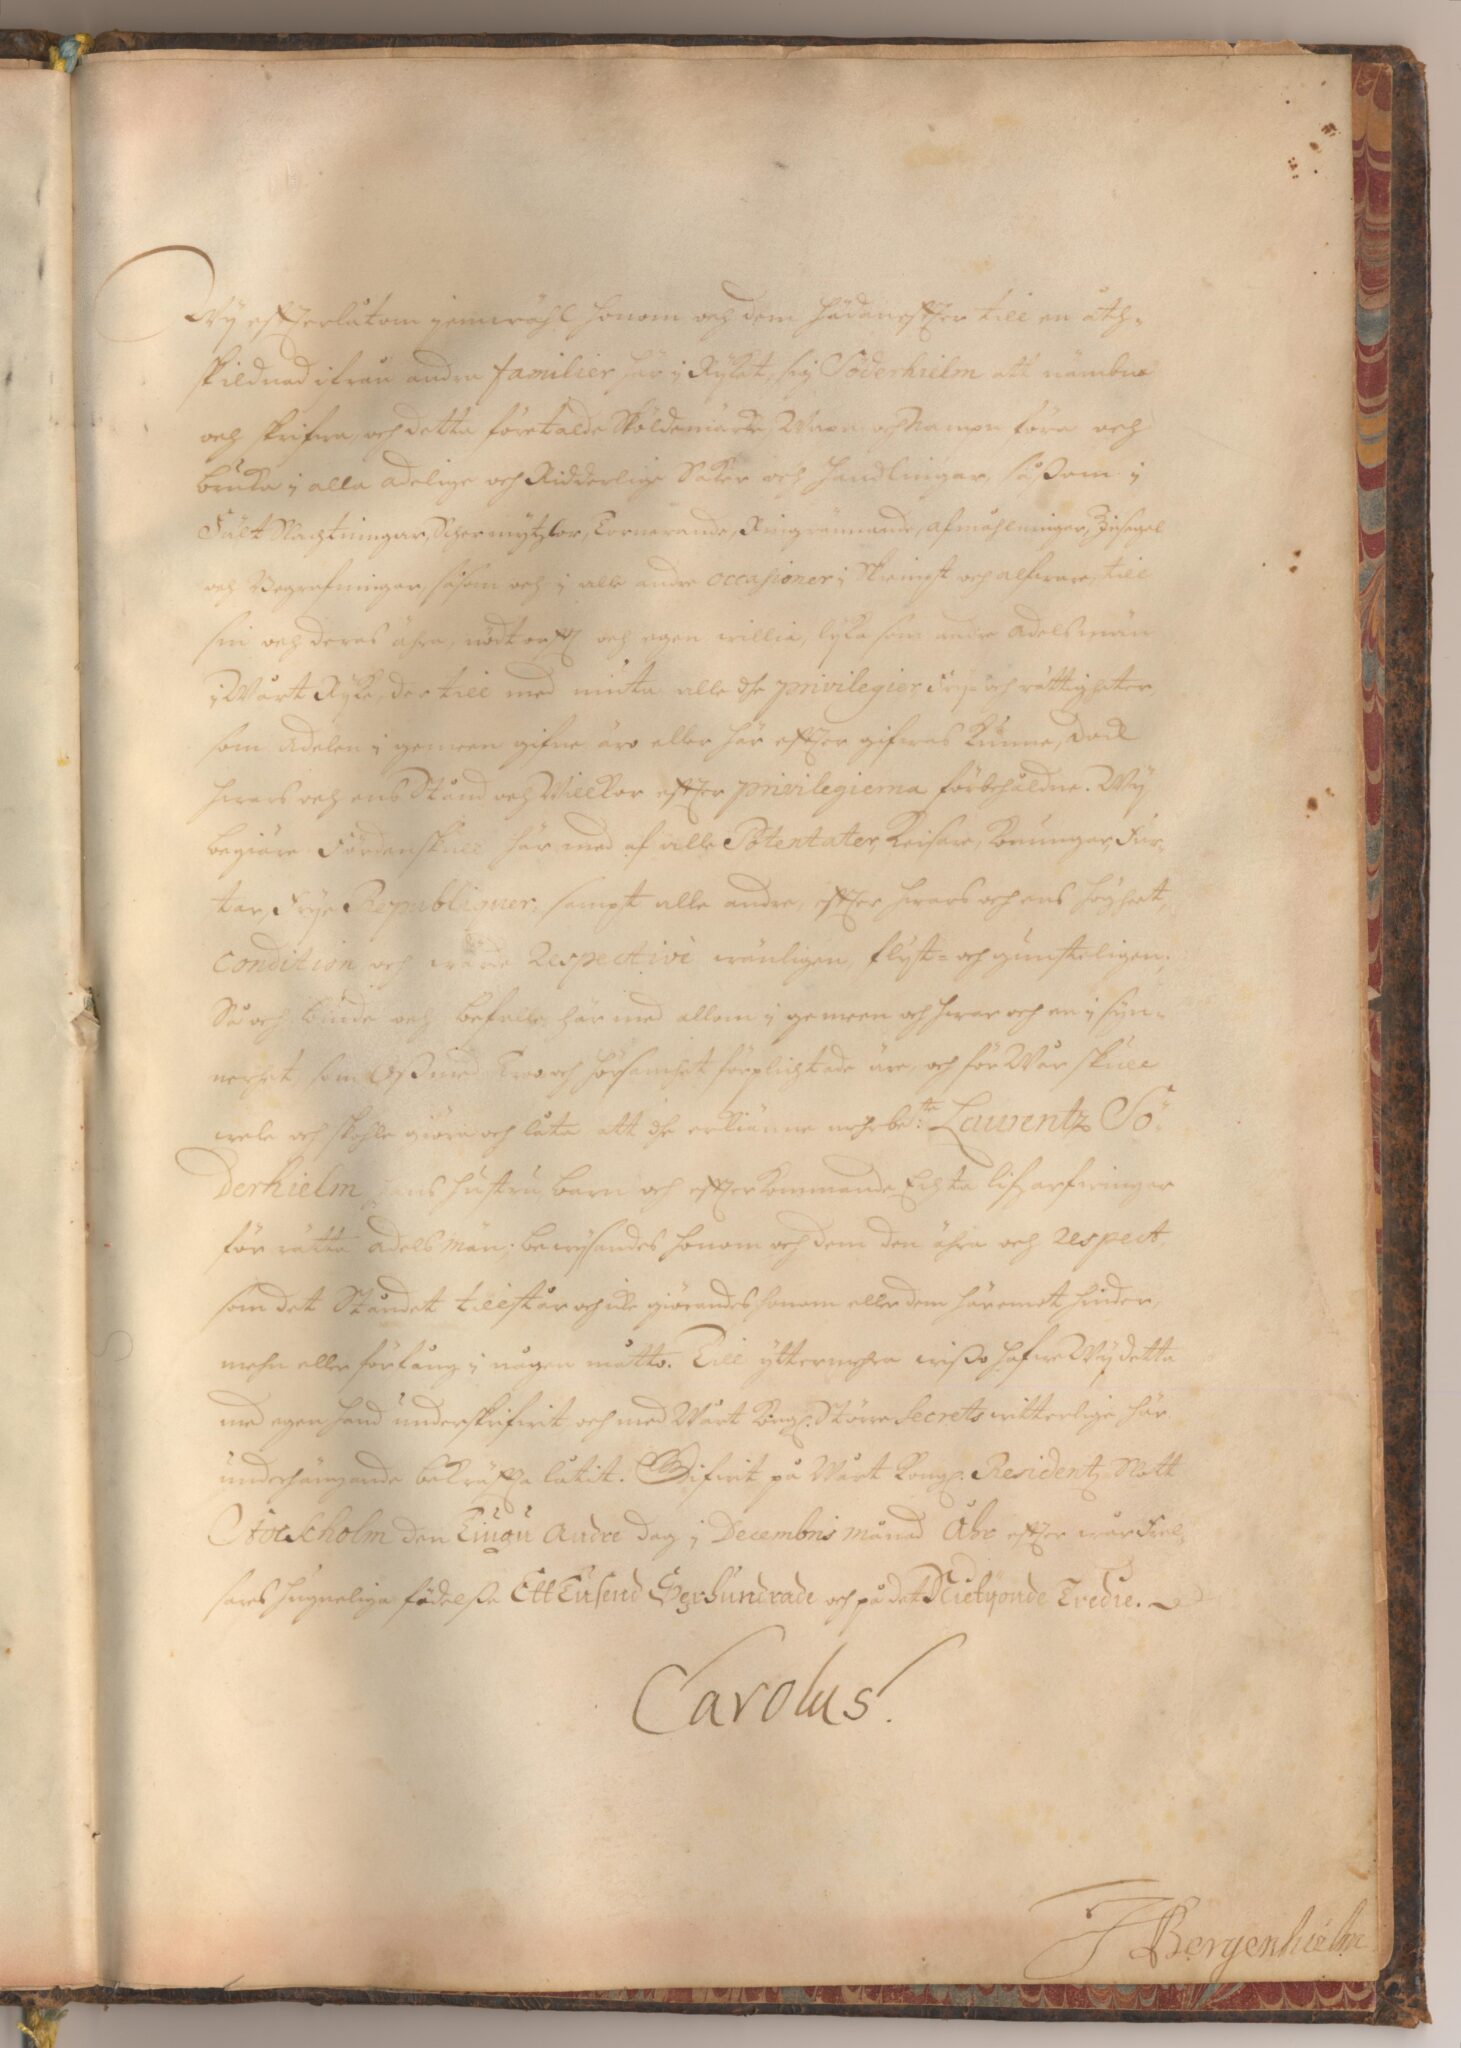 Wij effterlåtom jemwähl honom och dem hädaneffter till en åth-
skildnad ifrån andra familier här i Rijket, sig Söderhielm att nämbna
och skrifwa, och detta företalde Sköldemärke, Wapn och Nampn föra och
bruka i alla adelige och Ridderlige Saker och handlingar, såssom i
Fält Slachtningar, Schermytzlar, Tornerande, Ringrännande, afmåhlningar, Zijsegel
och Begrafningar, såsom och i alle andre occasioner i Skiempt och alfware, till
sin och deras ähra, nödtorfft och egen willia, lijka som andre Adelsmän
i Wårt Rijke, der till med niuta alle dhe privilegier, Frij- och rättigheter,
som Adelen i gemeen gifne äro eller här effter gifwas kunne, dock
hwars och ens Stånd och Willkor effter privilegierna förbehåldne. Wij
begiäre fördenskull här med af alle Potentater, Keisare, Konungar, Fur-
star, Frije Republiquer, sampt alle andre, effter hwars och ens höghet,
condition och wärde Respectivè wänligen, flijt- och gunsteligen;
Så och biude och befalle här med allom i gemeen och hwar och en i syn-
nerhet, som Oss med Troo och hörsamhet förplichtade äre, och för Wår skull
wele och skohle giöra och låta, att dhe erkiänne mehrbe:te Laurentz Sö-
derhielm hans hustru, barn och effterkommande Echta lifzarfwingar
för rätta Adelsmän; bewijsandes honom och dem den ähra och Respect,
som det Ståndet tillstår och icke giörandes honom eller dem häremot hinder,
mehn eller förfång i någon måtto. Till yttermehra wisso hafwe Wij detta
med egen hand underskrifwit och med Wårt Kongl. Större Secrets witterlige här
underhängande bekräffta låtit. Gifwit på Wårt Kongl. Residentz Slott
Stockholm den Tiugu Andre dag i Decembris Månad Åhr effter wår Frel-
sares hugneliga födelse Ett Tusend Sexhundrade och på det Nietijonde Tredie.
Carolus.
J Bergenhielm